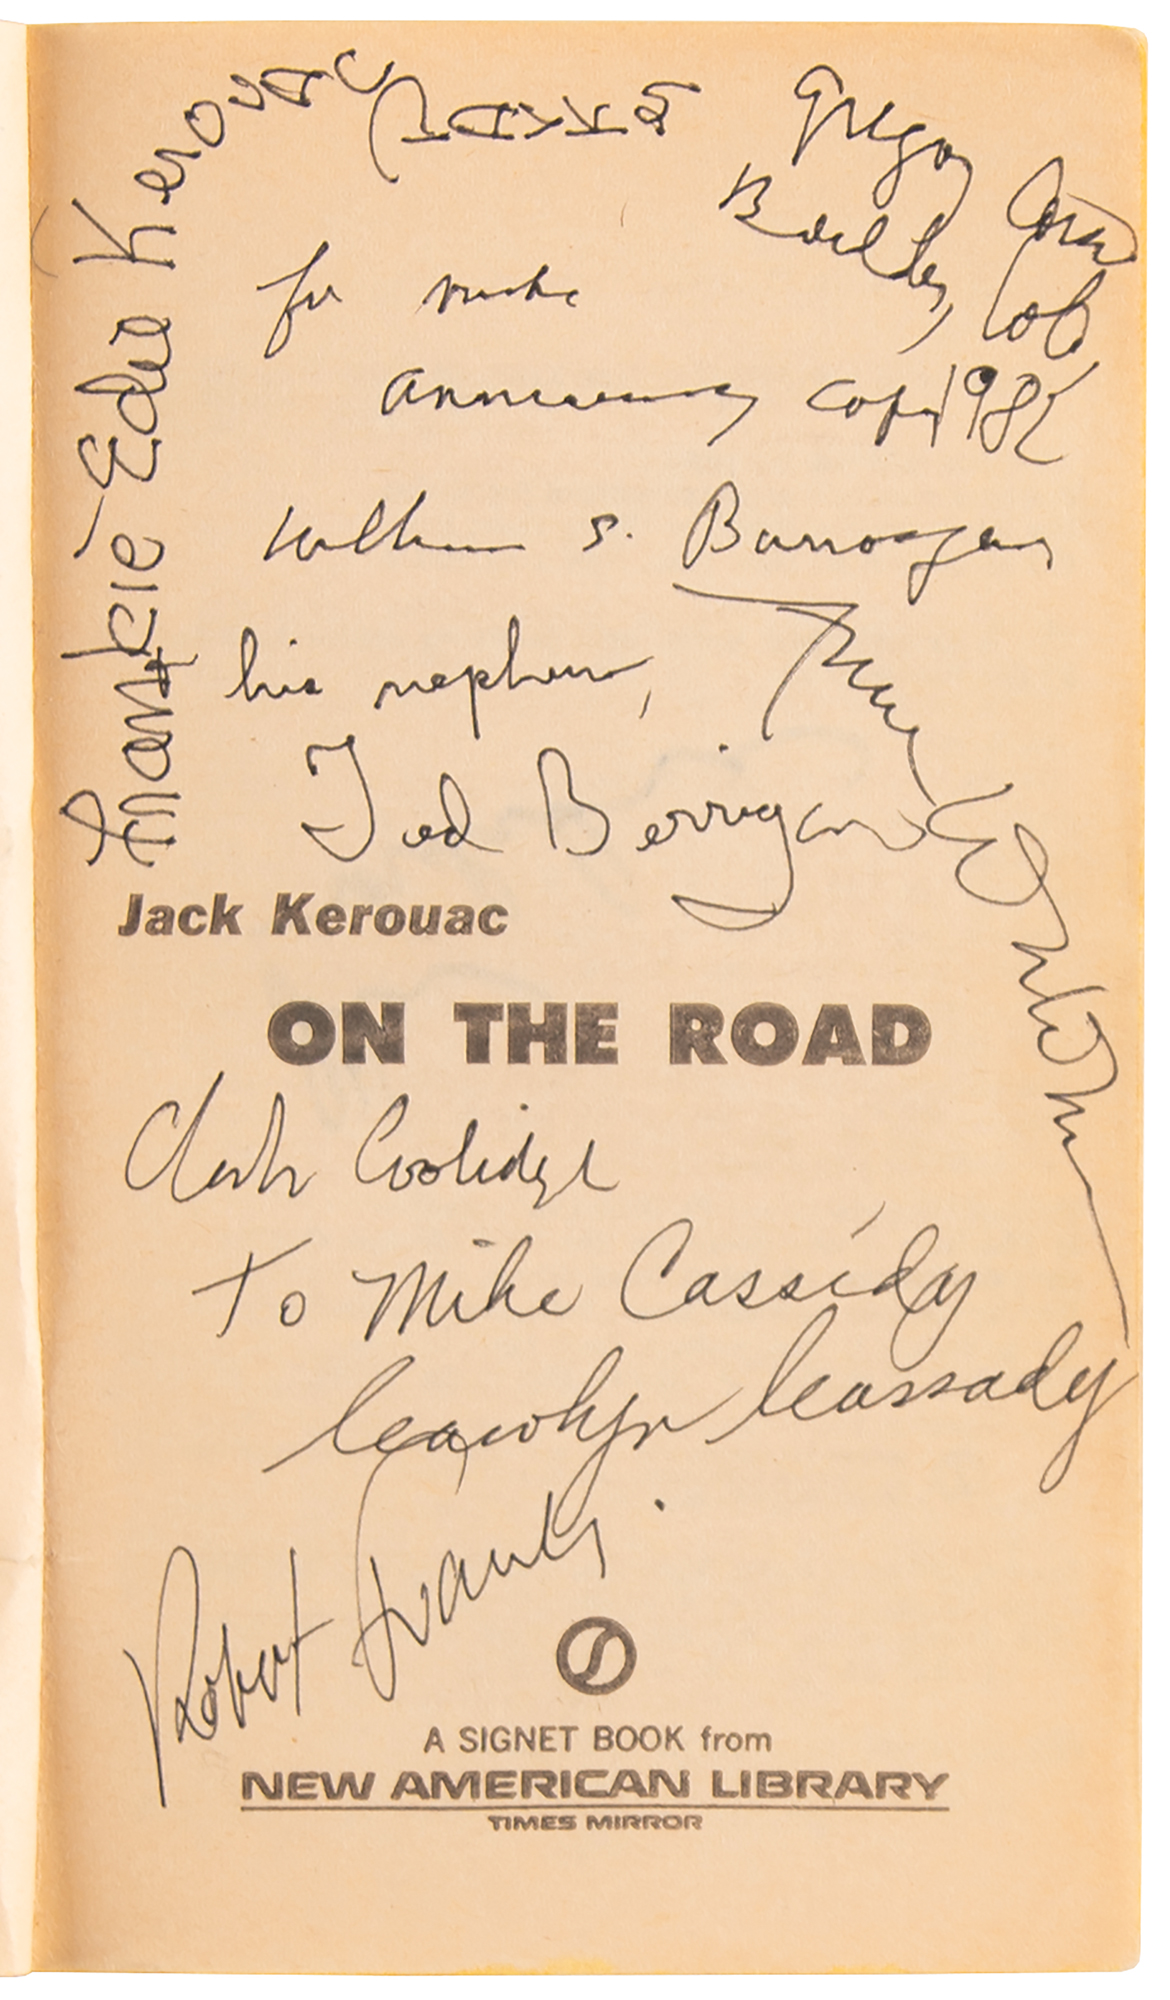 Frankie Edie Kerouac
PARKER
Gregory Corso
Boulder, Colo
for mike
anniversary copy 1982
William S. Burroughs
his nephew,
Ted Berrigan
Jack Kerouac
ON THE ROAD
Clark Coolidge
To Mike Cassidy
Carolyn Cassady
Robert Frank
A SIGNET BOOK from
NEW AMERICAN LIBRARY
TIMES MIRROR